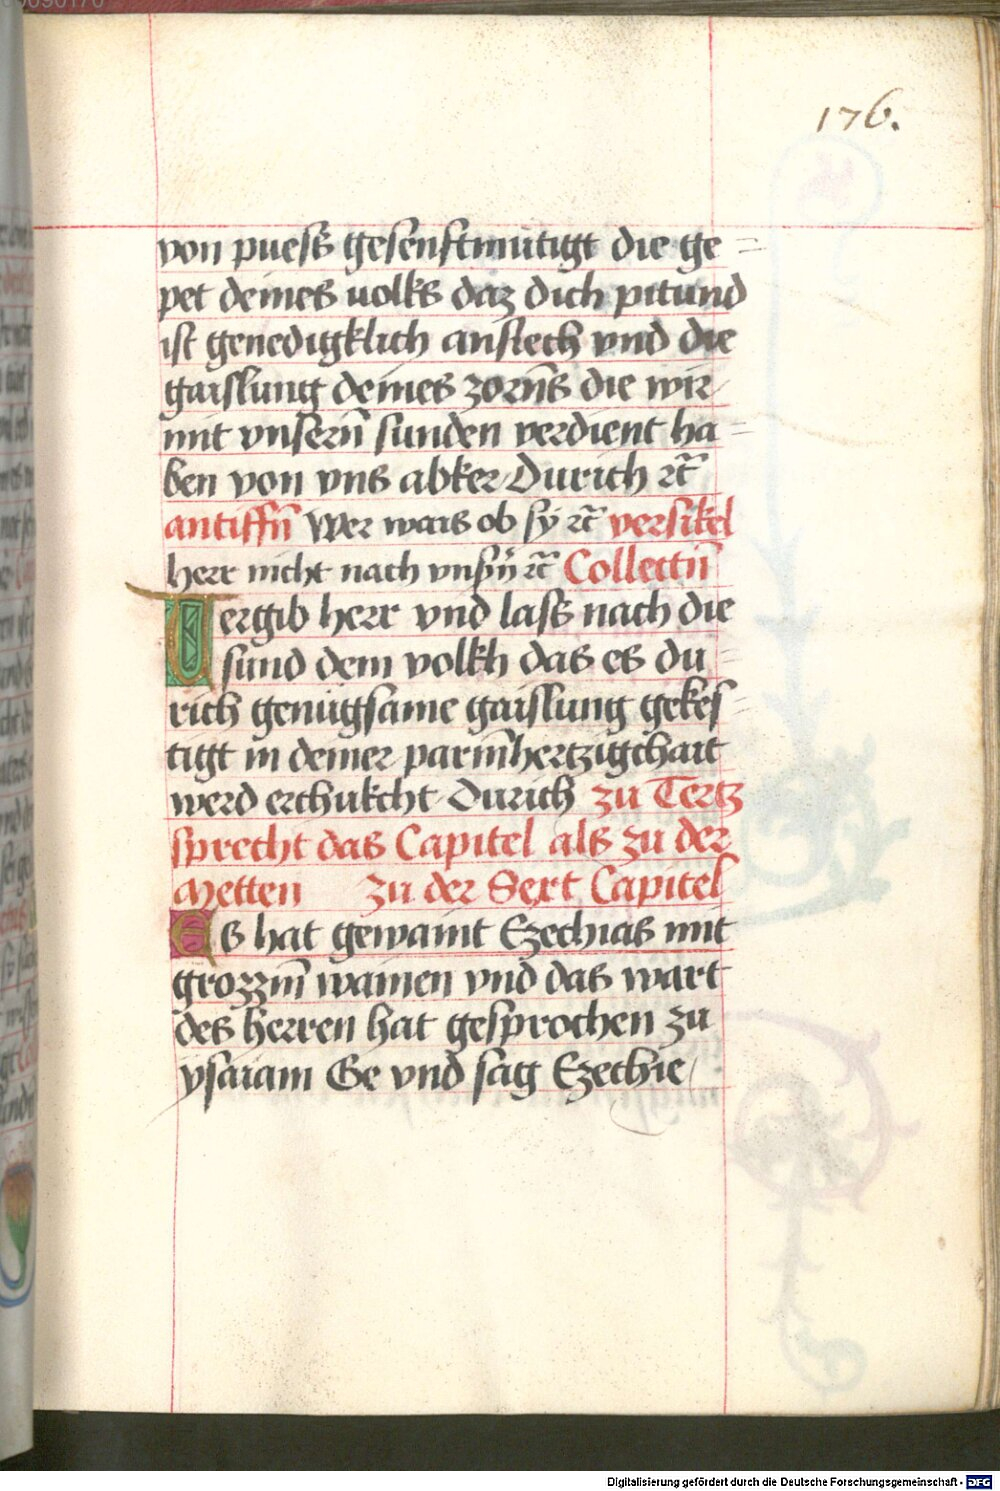 176.
von puesß gesenftmutigt die ge=
pet deines volks daz dich pitund
ist genedigklich ansiech vnd die
gaislung deines zorn̄s die wir
mit vnsern̄ sunden verdient ha=
ben von vns abker Durich ꝛc̄
antiffn̄ Wer wais ob sy ꝛc̄ versikel
herr nicht nach vnsn̄ ꝛc̄ Collectn̄
Vergib herr vnd lasß nach die
sund dem volkh das es du=
rich genugsame gaislung gekes=
tigt in deiner parm̄hertzigchait
werd erchukcht Durich zu Tertz
sprecht das Capitel als zu der
Metten zu der Sext Capitel
Es hat gewaint Ezechias mit
grozzm̄ wainen vnd das wart
des herren hat gesprochen zu
ysaiam Ge vnd sag Ezechie
Digitalisierung gefördert durch die Deutsche Forschungsgemeinschaft - DFG